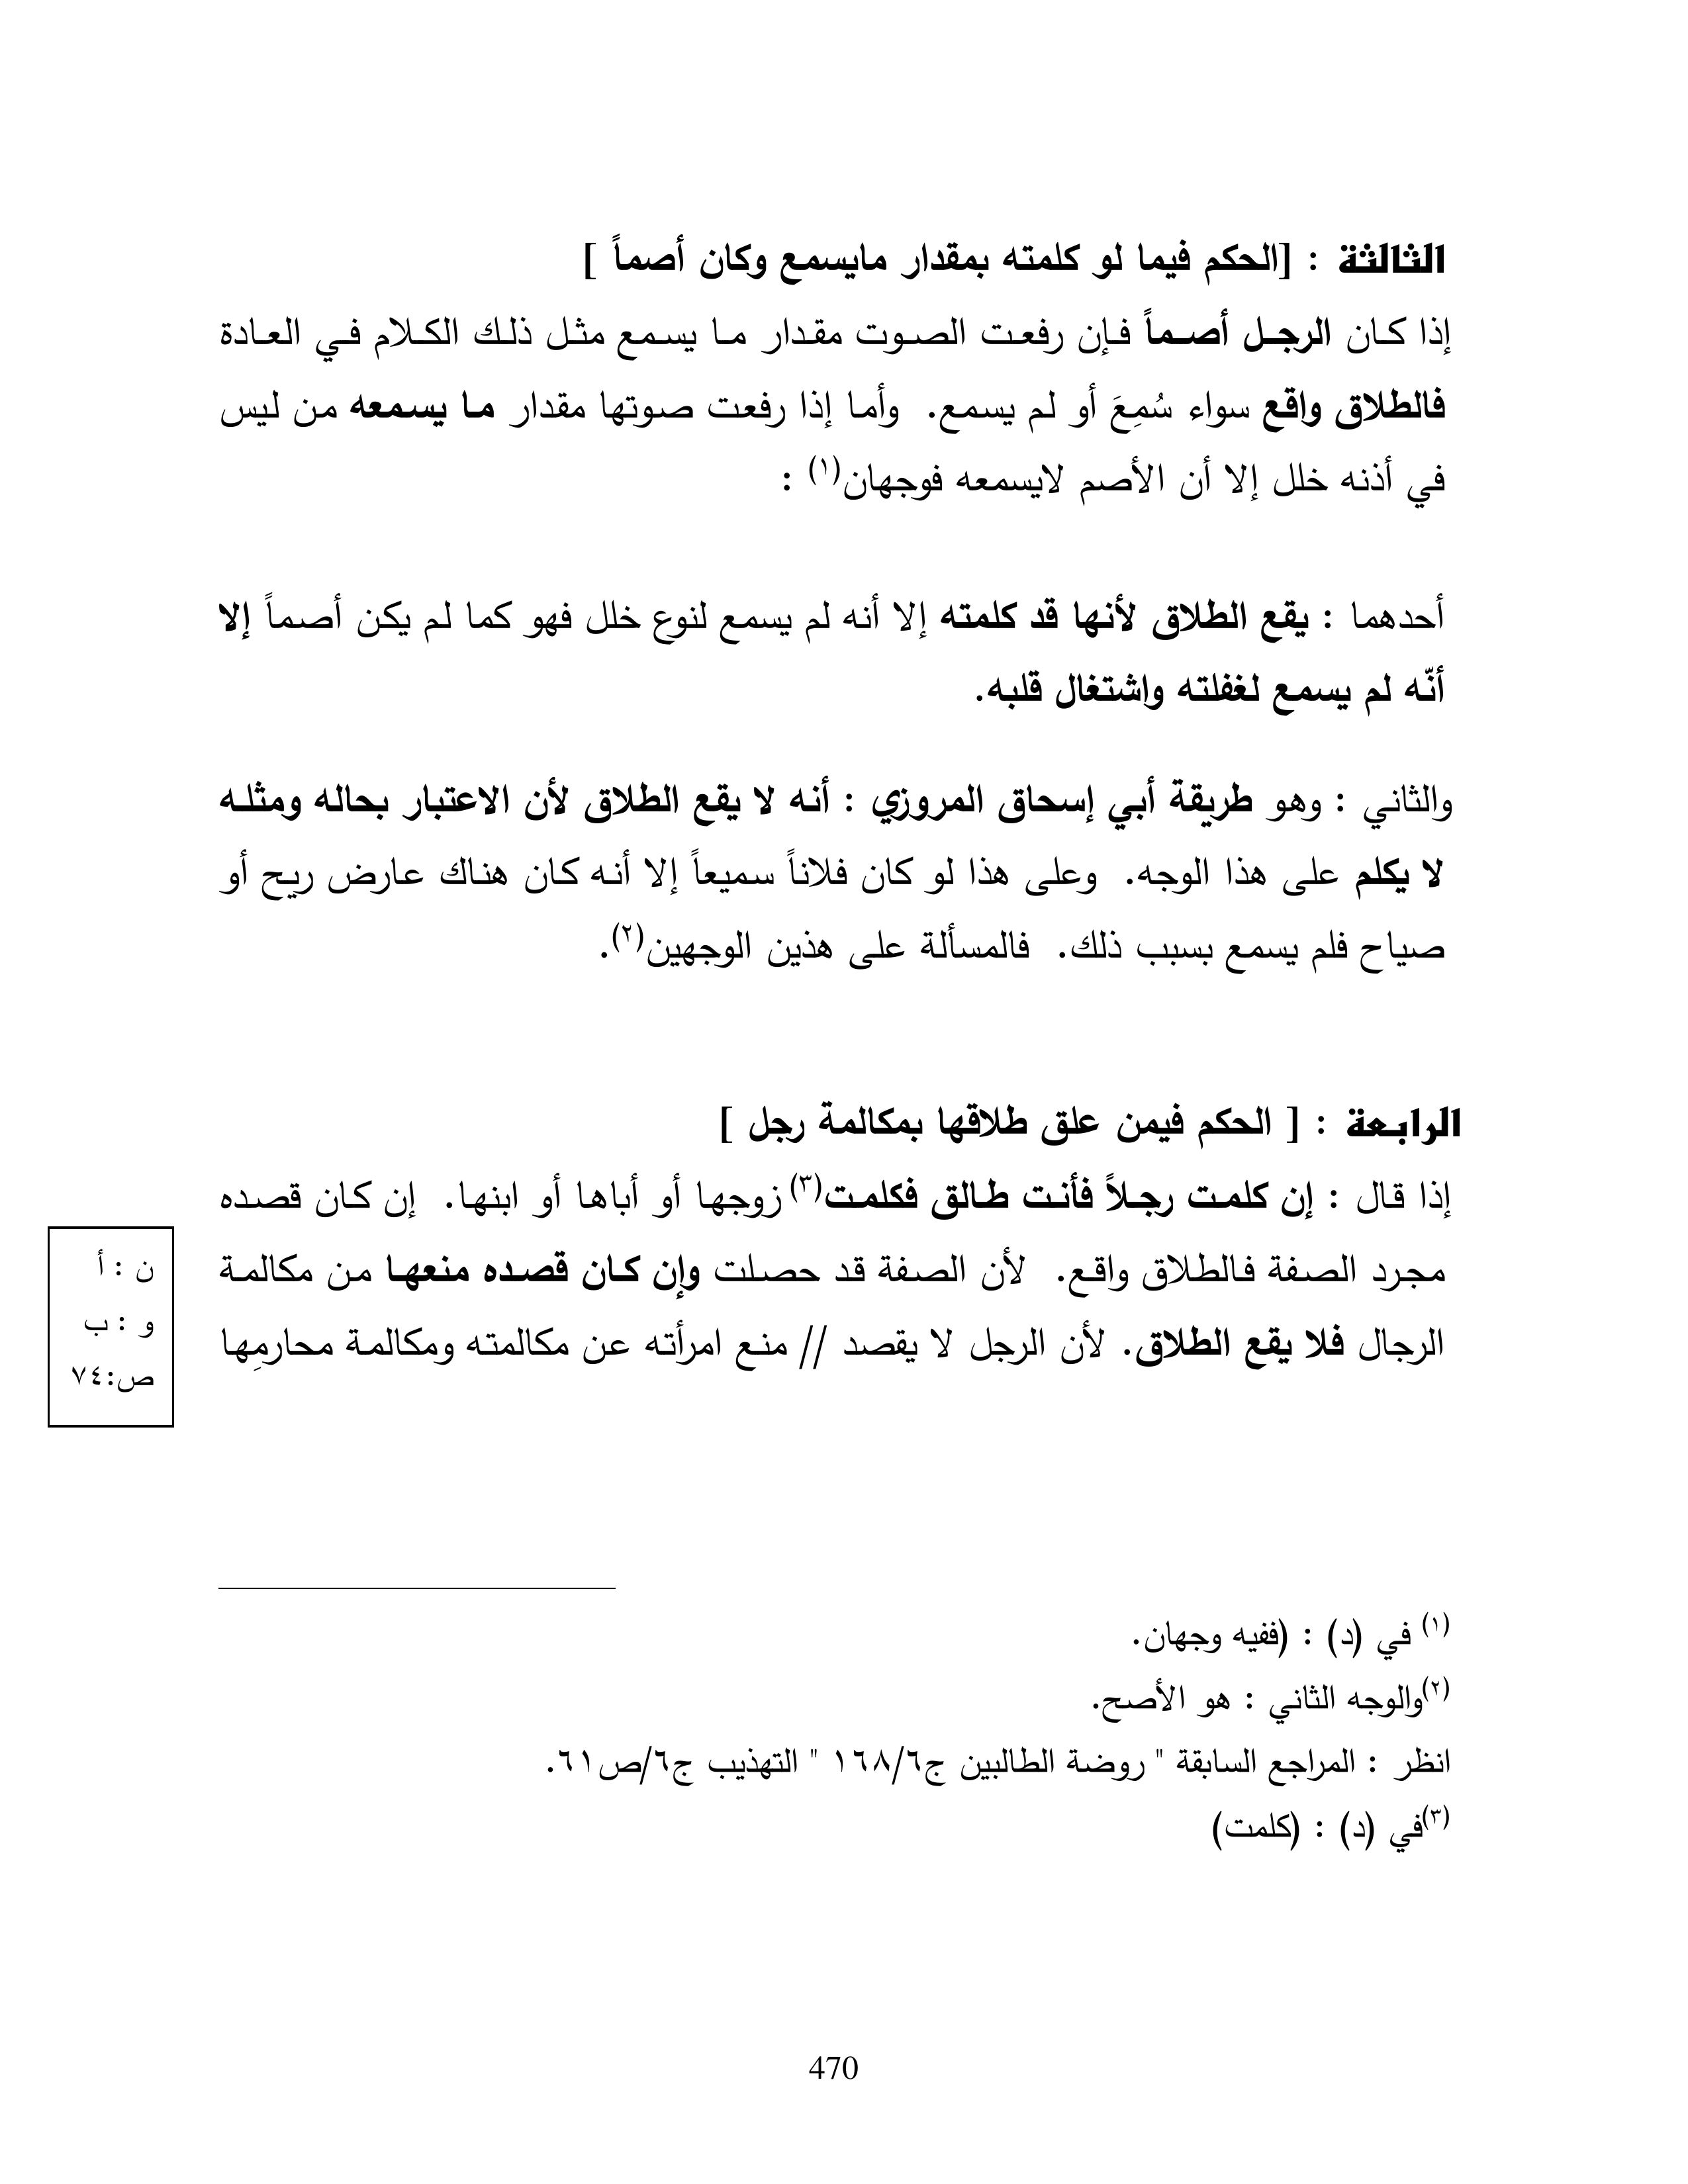 الثالثة : [الحكم فيما لو كلمته بمقدار مايسمع وكان أصماً ]
إذا كان الرجل أصماً فإن رفعت الصوت مقدار ما يسمع مثل ذلك الكلام في العادة
فالطلاق واقع سواء سُمِعَ أو لم يسمع. وأما إذا رفعت صوتها مقدار ما يسمعه من ليس
في أذنه خلل إلا أن الأصم لايسمعه فوجهان(١) :
أحدهما : يقع الطلاق لأنها قد كلمته إلا أنه لم يسمع لنوع خلل فهو كما لم يكن أصماً إلا
أنّه لم يسمع لغفلته واشتغال قلبه.
والثاني : وهو طريقة أبي إسحاق المروزي : أنه لا يقع الطلاق لأن الاعتبار بحاله ومثله
لا يكلم على هذا الوجه. وعلى هذا لو كان فلاناً سميعاً إلا أنه كان هناك عارض ريح أو
صياح فلم يسمع بسبب ذلك. فالمسألة على هذين الوجهين(٢).
الرابعة : [ الحكم فيمن علق طلاقها بمكالمة رجل ]
إذا قال : إن كلمت رجلاً فأنت طالق فكلمت(٣) زوجها أو أباها أو ابنها. إن كان قصده
مجرد الصفة فالطلاق واقع. لأن الصفة قد حصلت وإن كان قصده منعها من مكالمة
الرجال فلا يقع الطلاق. لأن الرجل لا يقصد // منع امرأته عن مكالمته ومكالمة محارمِها
ن : أ
و : ب
ص:٧٤
(١) في (د) : (ففيه وجهان.
(٢)والوجه الثاني : هو الأصح.
انظر : المراجع السابقة " روضة الطالبين ج٦/١٦٨ " التهذيب ج٦/ص٦١.
(٣)في (د) : (كلمت)
470